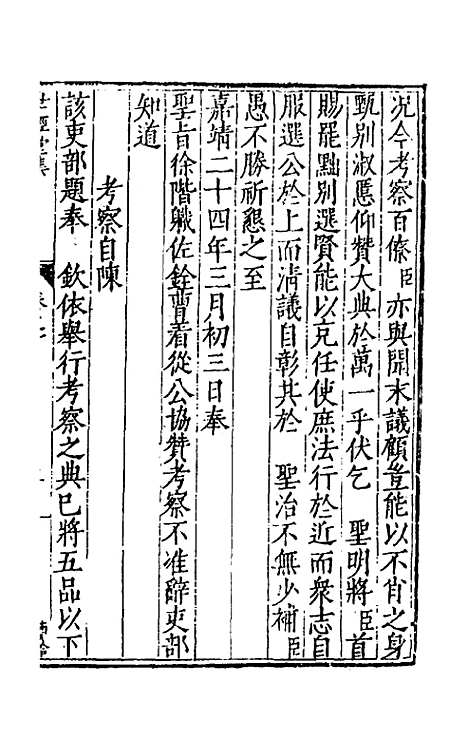 况今考察百僚臣亦與聞末議顧豈能以不肖之身
甄别淑慝仰贊大典於萬一乎伏乞 聖明將臣首
賜罷黜别選賢能以充任使庶法行於近而衆志自
服選公於上而清議自彰其於 聖治不無少補臣
愚不勝祈懇之至
嘉靖二十四年三月初三日奉
聖旨徐階職佐銓曹着從公協贊考察不准辭吏部
知道
考察自陳
該吏部題奉 欽依舉行考察之典已將五品以下
世經堂集